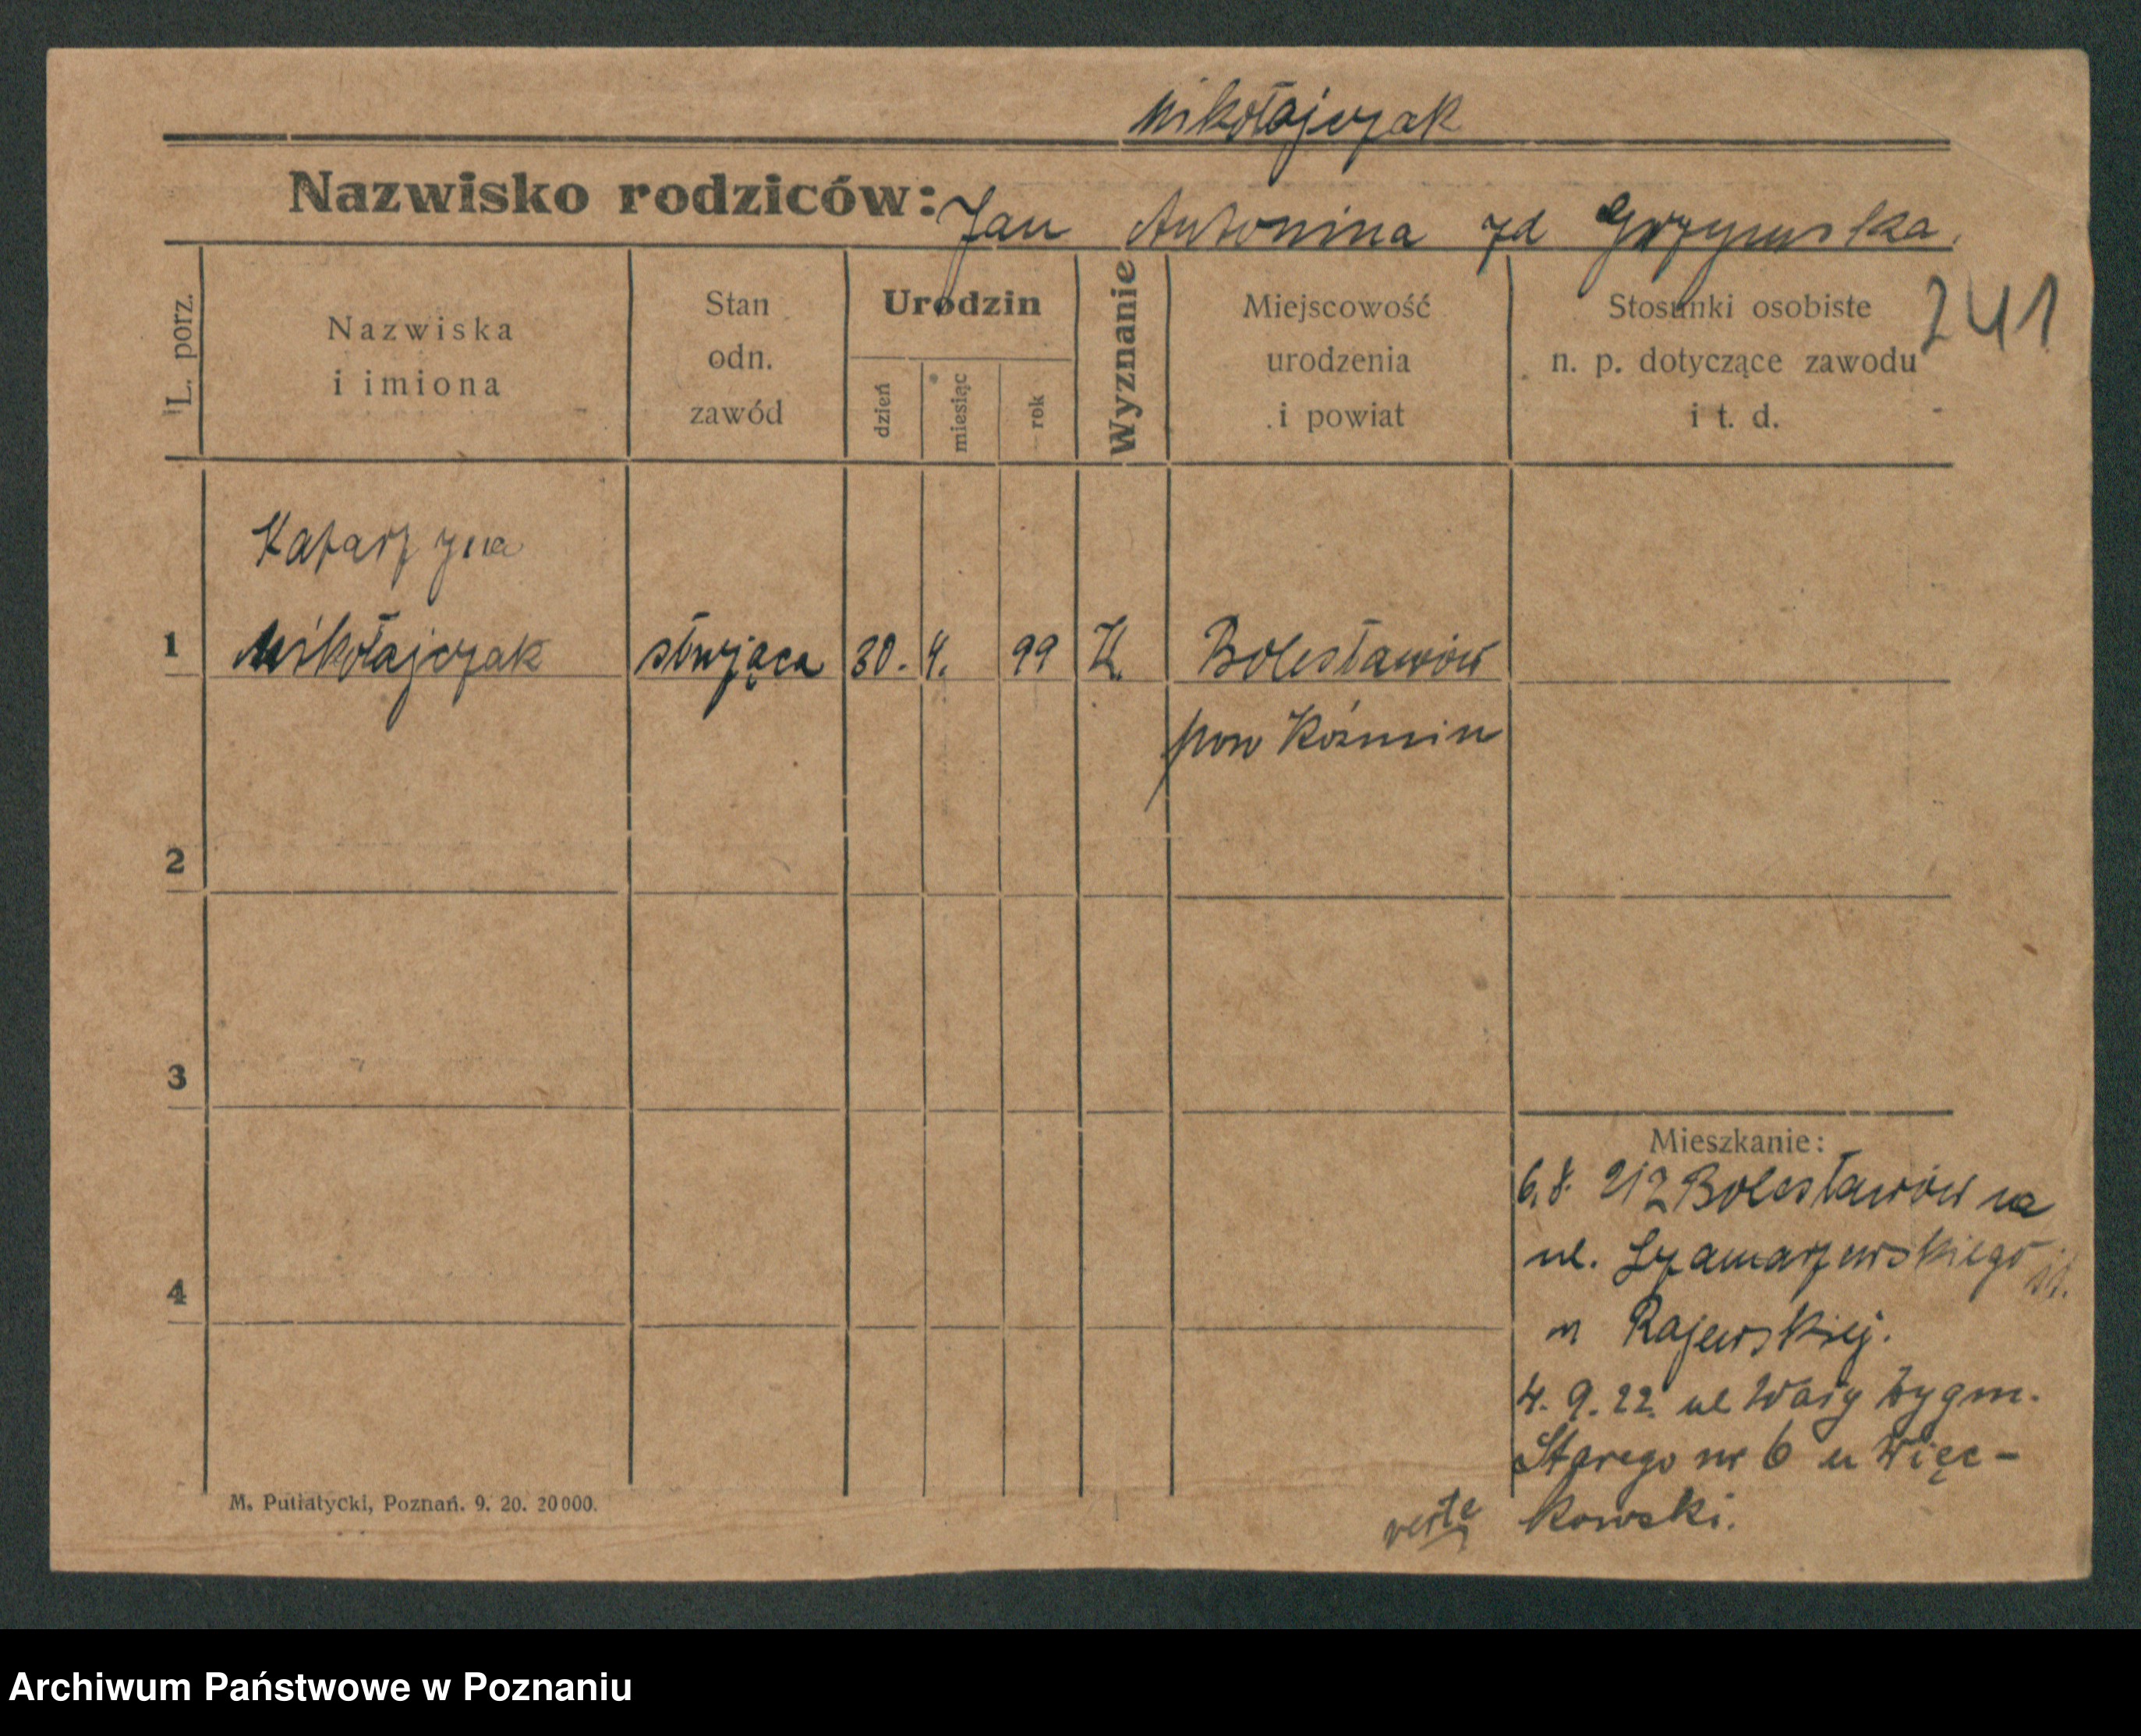 Mikołajczak
Nazwisko rodziców: Jan Antonina zd Grzymska.
241
L. porz.
Nazwiska
i imiona
Stan
odn.
zawód
Urodzin
dzień
miesiąc
rok
Wyznanie
Miejscowość
urodzenia
i powiat
Stosunki osobiste
n. p. dotyczące zawodu
i t. d.
Katarzyna
1 Mikołajczak służąca 30. 4. 99 K. Bolesławów
pow Koźmin
2
3
4
Mieszkanie:
6. 8. 212 Bolesławów na
ul. Szamarzewskiego
u Rajewskiej.
4. 9. 22. ul Wały Zygm.
Starego nr 6 u Więc-
kowski.
verte
M. Putiatycki, Poznań. 9. 20. 20000.
Archiwum Państwowe w Poznaniu